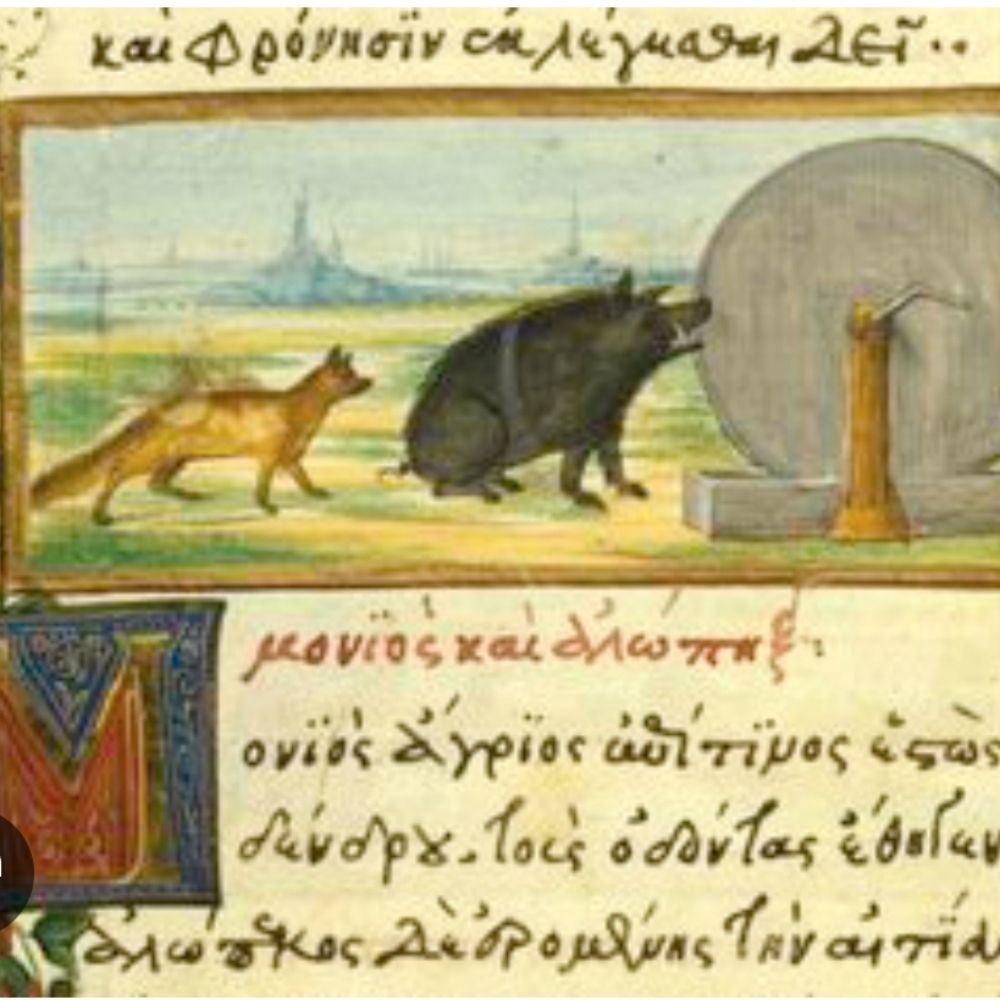 καὶ φρόνησϊν ἐκλέγεσθαι δεῖ··
μονϊὸς καὶ ἀλώπηξ:
Μονϊὸς ἄγρϊος ἐπί τϊνος ἑστὼς
δένδρου. τοὺς ὀδόντας ἔθηγεν
ἀλώπεκος δὲ ἐρομένης τὴν αἰτϊα